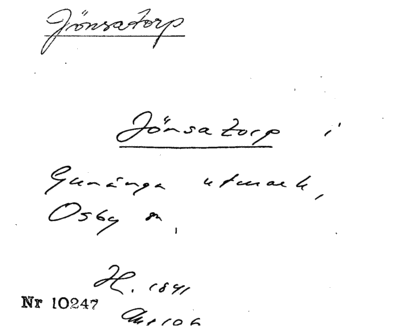 Jönsatorp
Jönsatorp i
Gunänga utmark,
Osby sn,
H. 1841
Nr 10247